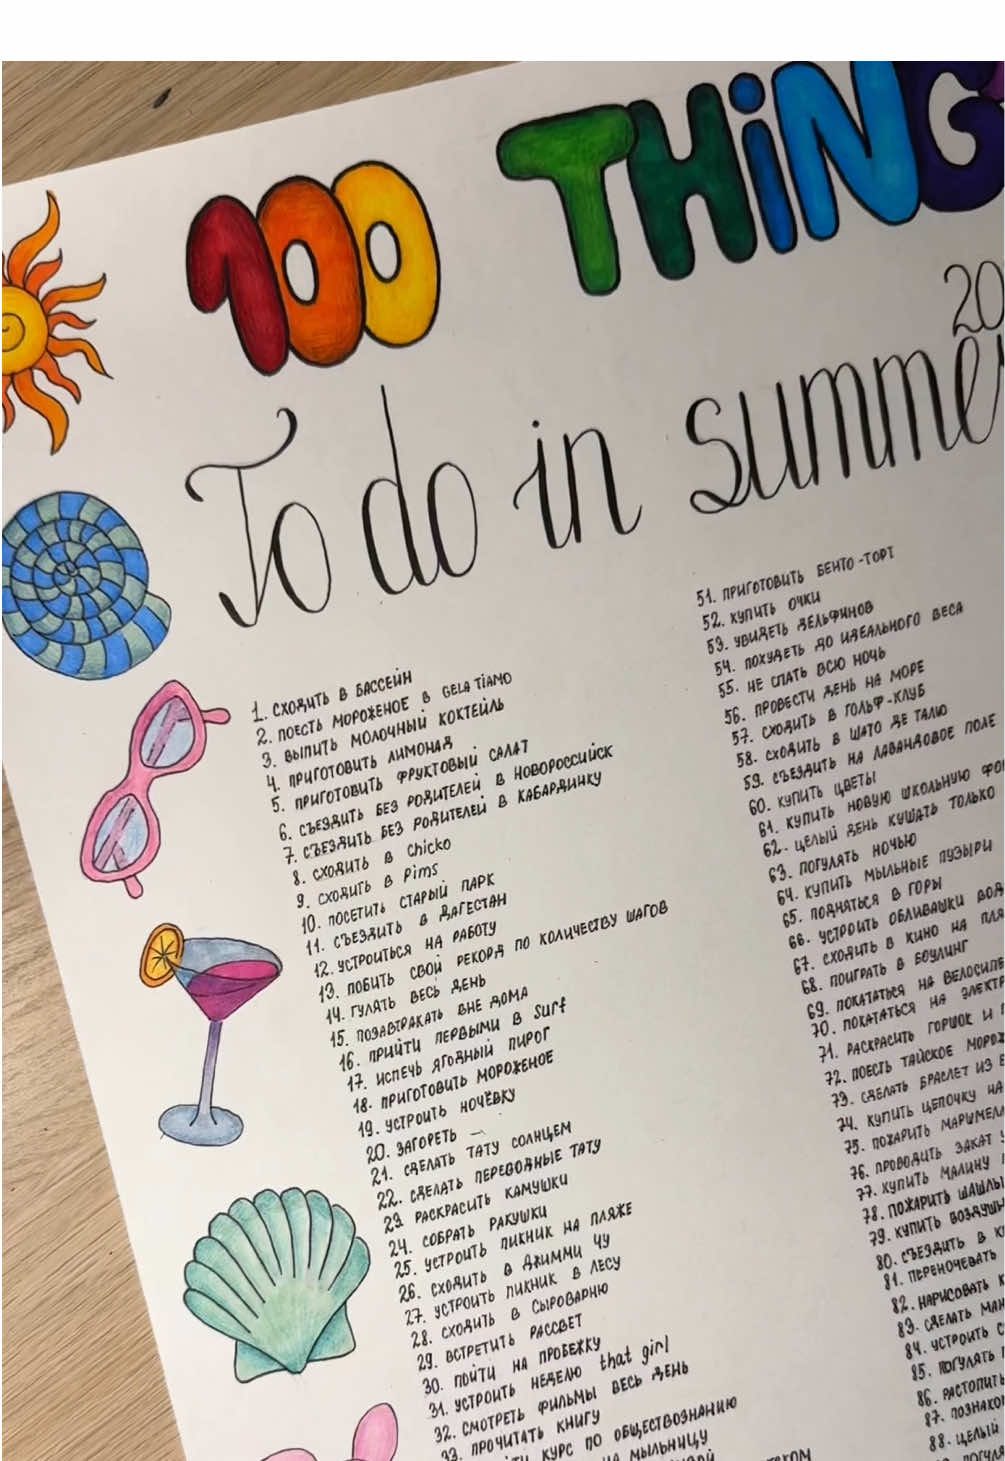 100 THING
20
To do in summe
1. СХОДИТЬ В БАССЕЙН
2. ПОЕСТЬ МОРОЖЕНОЕ В GELATIAMO
3. ВЫПИТЬ МОЛОЧНЫЙ КОКТЕЙЛЬ
4. ПРИГОТОВИТЬ ЛИМОНАД
5. ПРИГОТОВИТЬ ФРУКТОВЫЙ САЛАТ
6. СЪЕЗДИТЬ БЕЗ РОДИТЕЛЕЙ В НОВОРОССИЙСК
7. СЪЕЗДИТЬ БЕЗ РОДИТЕЛЕЙ В КАБАРДИНКУ
8. СХОДИТЬ В Chicko
9. СХОДИТЬ В Pims
10. ПОСЕТИТЬ СТАРЫЙ ПАРК
11. СЪЕЗДИТЬ В ДАГЕСТАН
12. УСТРОИТЬСЯ НА РАБОТУ
13. ПОБИТЬ СВОЙ РЕКОРД ПО КОЛИЧЕСТВУ ШАГОВ
14. ГУЛЯТЬ ВЕСЬ ДЕНЬ
15. ПОЗАВТРАКАТЬ ВНЕ ДОМА
16. ПРИЙТИ ПЕРВЫМИ В Surf
17. ИСПЕЧЬ ЯГОДНЫЙ ПИРОГ
18. ПРИГОТОВИТЬ МОРОЖЕНОЕ
19. УСТРОИТЬ НОЧЁВКУ
20. ЗАГОРЕТЬ
21. СДЕЛАТЬ ТАТУ СОЛНЦЕМ
22. СДЕЛАТЬ ПЕРЕВОДНЫЕ ТАТУ
23. РАСКРАСИТЬ КАМУШКИ
24. СОБРАТЬ РАКУШКИ
25. УСТРОИТЬ ПИКНИК НА ПЛЯЖЕ
26. СХОДИТЬ В ДЖИММИ ЧУ
27. УСТРОИТЬ ПИКНИК В ЛЕСУ
28. СХОДИТЬ В СЫРОВАРНЮ
29. ВСТРЕТИТЬ РАССВЕТ
30. ПОЙТИ НА ПРОБЕЖКУ
31. УСТРОИТЬ НЕДЕЛЮ that girl
32. СМОТРЕТЬ ФИЛЬМЫ ВЕСЬ ДЕНЬ
33. ПРОЧИТАТЬ КНИГУ
КУРС ПО ОБЩЕСТВОЗНАНИЮ
МЫЛЬНИЦУ
51. ПРИГОТОВИТЬ БЕНТО-ТОРТ
52. КУПИТЬ ОЧКИ
53. УВИДЕТЬ ДЕЛЬФИНОВ
54. ПОХУДЕТЬ ДО ИДЕАЛЬНОГО ВЕСА
55. НЕ СПАТЬ ВСЮ НОЧЬ
56. ПРОВЕСТИ ДЕНЬ НА МОРЕ
57. СХОДИТЬ В ГОЛЬФ-КЛУБ
58. СХОДИТЬ В ШАТО ДЕ ТАЛЮ
59. СЪЕЗДИТЬ НА ЛАВАНДОВОЕ ПОЛЕ
60. КУПИТЬ ЦВЕТЫ
61. КУПИТЬ НОВУЮ ШКОЛЬНУЮ ФО
62. ЦЕЛЫЙ ДЕНЬ КУШАТЬ ТОЛЬКО
63. ПОГУЛЯТЬ НОЧЬЮ
64. КУПИТЬ МЫЛЬНЫЕ ПУЗЫРИ
65. ПОДНЯТЬСЯ В ГОРЫ
66. УСТРОИТЬ ОБЛИВАШКИ ВОД
67. СХОДИТЬ В КИНО НА ПЛЯ
68. ПОИГРАТЬ В БОУЛИНГ
69. ПОКАТАТЬСЯ НА ВЕЛОСИПЕ
70. ПОКАТАТЬСЯ НА ЭЛЕКТР
71. РАСКРАСИТЬ ГОРШОК И
72. ПОЕСТЬ ТАЙСКОЕ МОРОЖ
73. СДЕЛАТЬ БРАСЛЕТ ИЗ
74. КУПИТЬ ЦЕПОЧКУ НА
75. ПОЖАРИТЬ МАРШМЕЛ
76. ПРОВОДИТЬ ЗАКАТ
77. КУПИТЬ МАЛИНУ
78. ПОЖАРИТЬ ШАШЛЫ
79. КУПИТЬ ВОЗДУШ
80. СЪЕЗДИТЬ В К
81. ПЕРЕНОЧЕВАТЬ
82. НАРИСОВАТЬ К
83. СДЕЛАТЬ МАН
84. УСТРОИТЬ С
85. ПОГУЛЯТЬ
86. РАСТОПИТЬ
87. ПОЗНАКО
88. ЦЕЛЫЙ